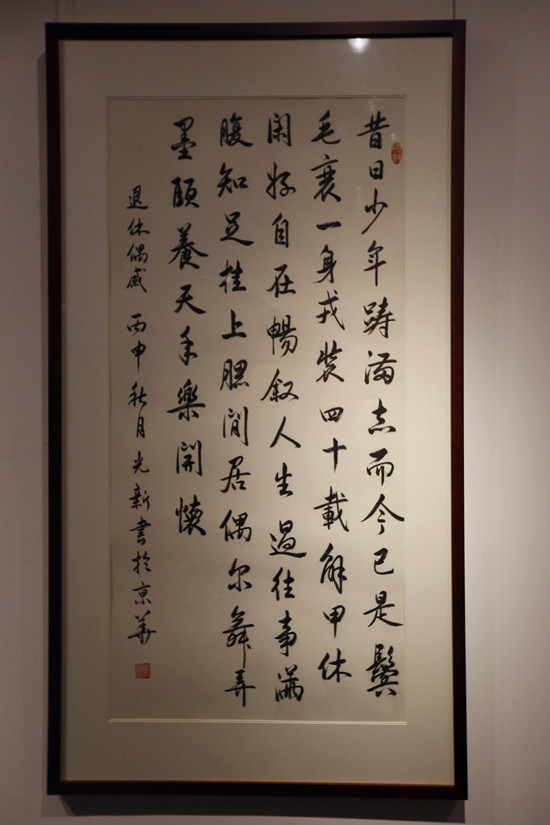 昔日少年踌满志而今已是鬓
毛衰一身戎装四十載解甲休
闲好自在暢叙人生過往事满
腹知足挂上腮閒居偶尔舞弄
墨頤養天年樂開懷
退休偶感 丙申秋月光新書於京華